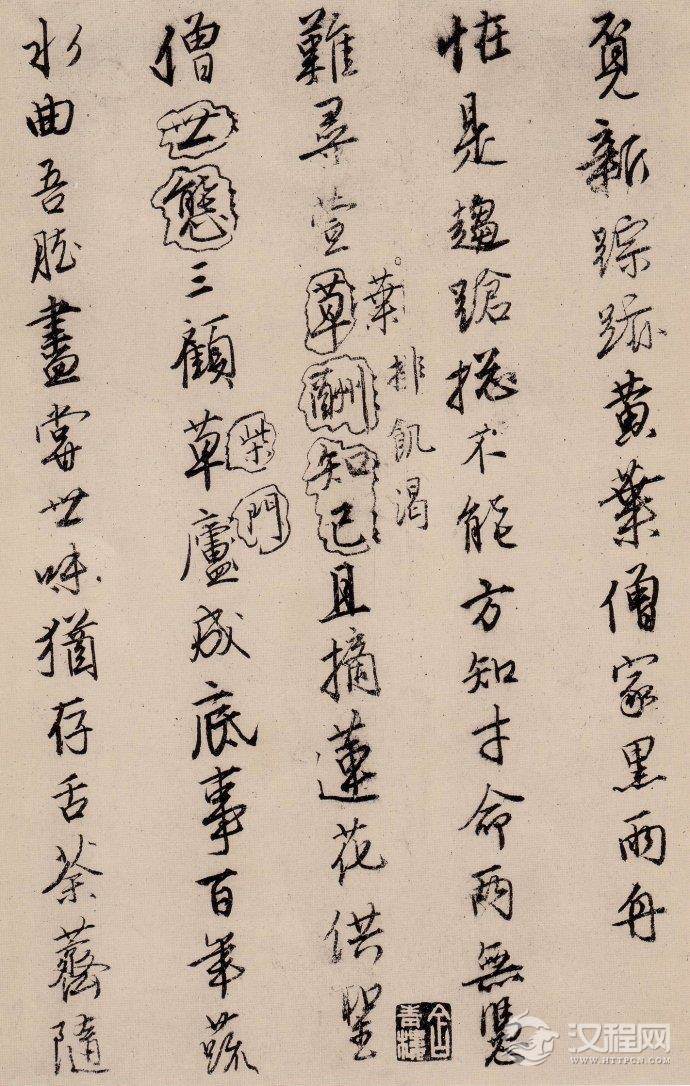 覓新踪跡黃葉僧家黑雨舟
怪是趨蹌揔不能方知才命兩無憑
難尋萱草酬知己且摘蓮花供聖
葉排飢渴
僧世態三顧草廬成底事百年蔬
柴門
水曲吾肱盡嘗世味猶存舌荼薺隨
汉程网
WWW.HTTPCN.COM